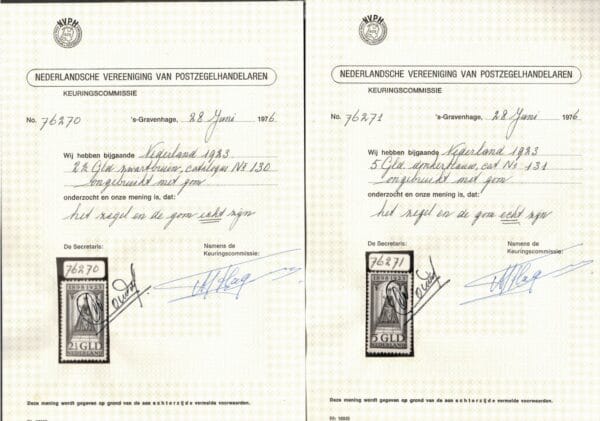 N.V.P.H.
NEDERLANDSCHE VEREENIGING VAN POSTZEGELHANDELAREN
KEURINGSCOMMISSIE
No. 76270 's-Gravenhage, 28 Juni 1976
Wij hebben bijgaande Nederland 1923
2½ Gld zwartbruin, catalogus No 130
ongebruikt met gom
onderzocht en onze mening is, dat:
het zegel en de gom echt zijn
De Secretaris:
Namens de
Keuringscommissie:
76270
1898-1923
2½ GLD
NEDERLAND
Deze mening wordt gegeven op grond van de aan achterzijde vermelde voorwaarden.
N.V.P.H.
NEDERLANDSCHE VEREENIGING VAN POSTZEGELHANDELAREN
KEURINGSCOMMISSIE
No. 76271 's-Gravenhage, 28 Juni 1976
Wij hebben bijgaande Nederland 1923
5 Gld donkerblauw, cat No 131
ongebruikt met gom
onderzocht en onze mening is, dat:
het zegel en de gom echt zijn
De Secretaris:
Namens de
Keuringscommissie:
76271
1898-1923
5 GLD
NEDERLAND
Deze mening wordt gegeven op grond van de aan achterzijde vermelde voorwaarden.